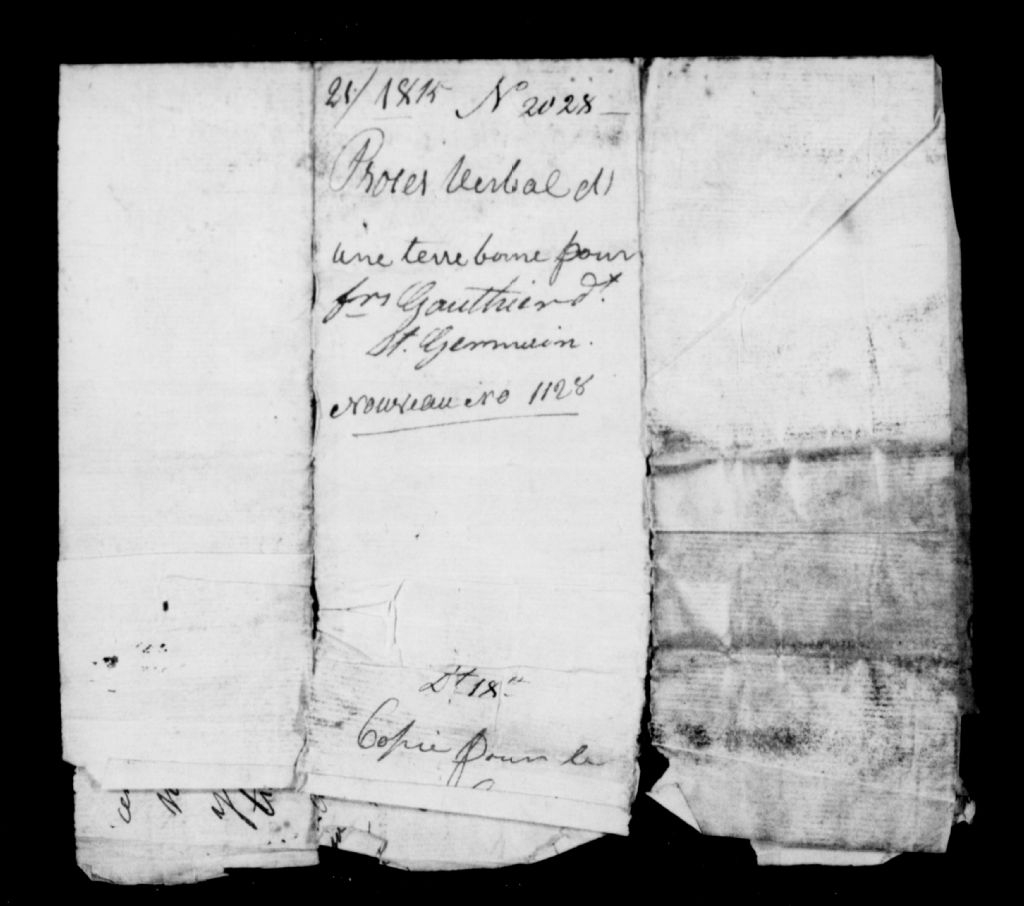 21/ 1815 No 2028
Proces Verbal d'
une terre borne pour
frs Gauthier dt
St. Germain.
Nouveau No 1128
Dt 18
Copie pour le